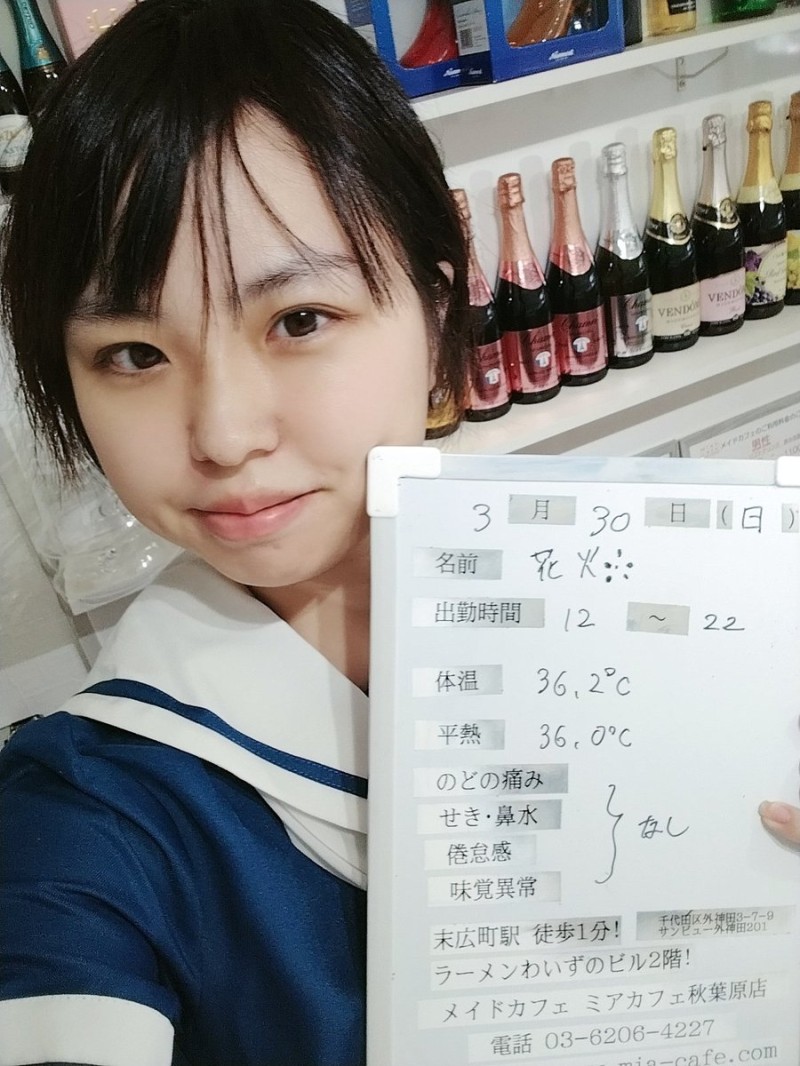 VENDÔME
VENDÔME
メイドカフェのご利用料金の
男性
3 月 30 日 (日)
名前 花火
出勤時間 12 ~ 22
体温 36.2℃
平熱 36.0℃
のどの痛み
せき・鼻水
倦怠感
味覚異常
なし
末広町駅 徒歩1分!
千代田区外神田3-7-9
サンビュー外神田201
ラーメンわいずのビル2階!
メイドカフェ ミアカフェ秋葉原店
電話 03-6206-4227
mia-cafe.com